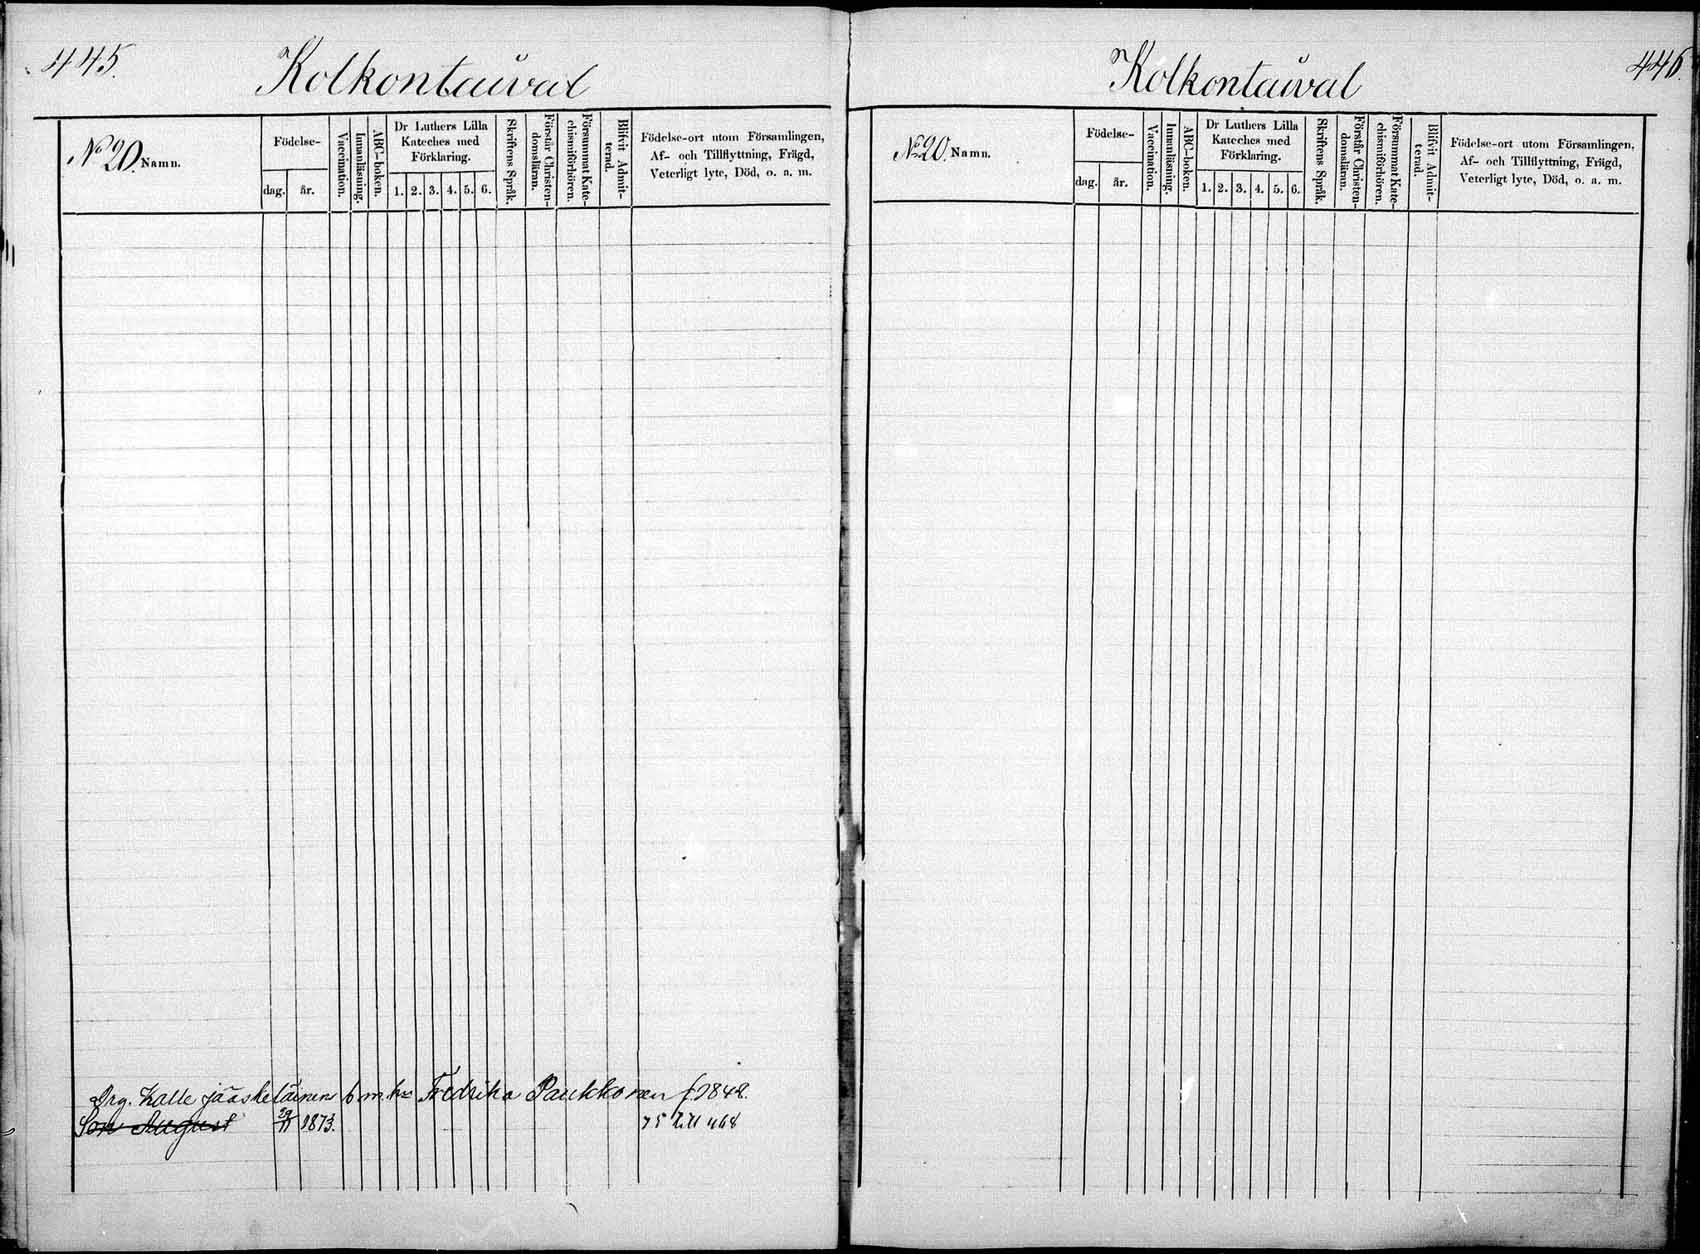 445.
Kolkontaival
No 20. Namn.
Födelse-
dag. år.
Vaccination.
Innanläsning.
ABC-boken.
Dr Luthers Lilla
Kateches med
Förklaring.
1. 2. 3. 4. 5. 6.
Skriftens Språk.
Förstår Christen-
domsläran.
Försummat Kate-
chismiförhören.
Blifvit Admit-
terad.
Födelse-ort utom Församlingen,
Af- och Tillflyttning, Frägd,
Veterligt lyte, Död, o. a. m.
Drg. Kalle Jääskeläinens b m. Fredrika Paukkonen f 1848.
Son August 29/11 1873. 75 till 468
446.
Kolkontaival
No 20. Namn.
Födelse-
dag. år.
Vaccination.
Innanläsning.
ABC-boken.
Dr Luthers Lilla
Kateches med
Förklaring.
1. 2. 3. 4. 5. 6.
Skriftens Språk.
Förstår Christen-
domsläran.
Försummat Kate-
chismiförhören.
Blifvit Admit-
terad.
Födelse-ort utom Församlingen,
Af- och Tillflyttning, Frägd,
Veterligt lyte, Död, o. a. m.